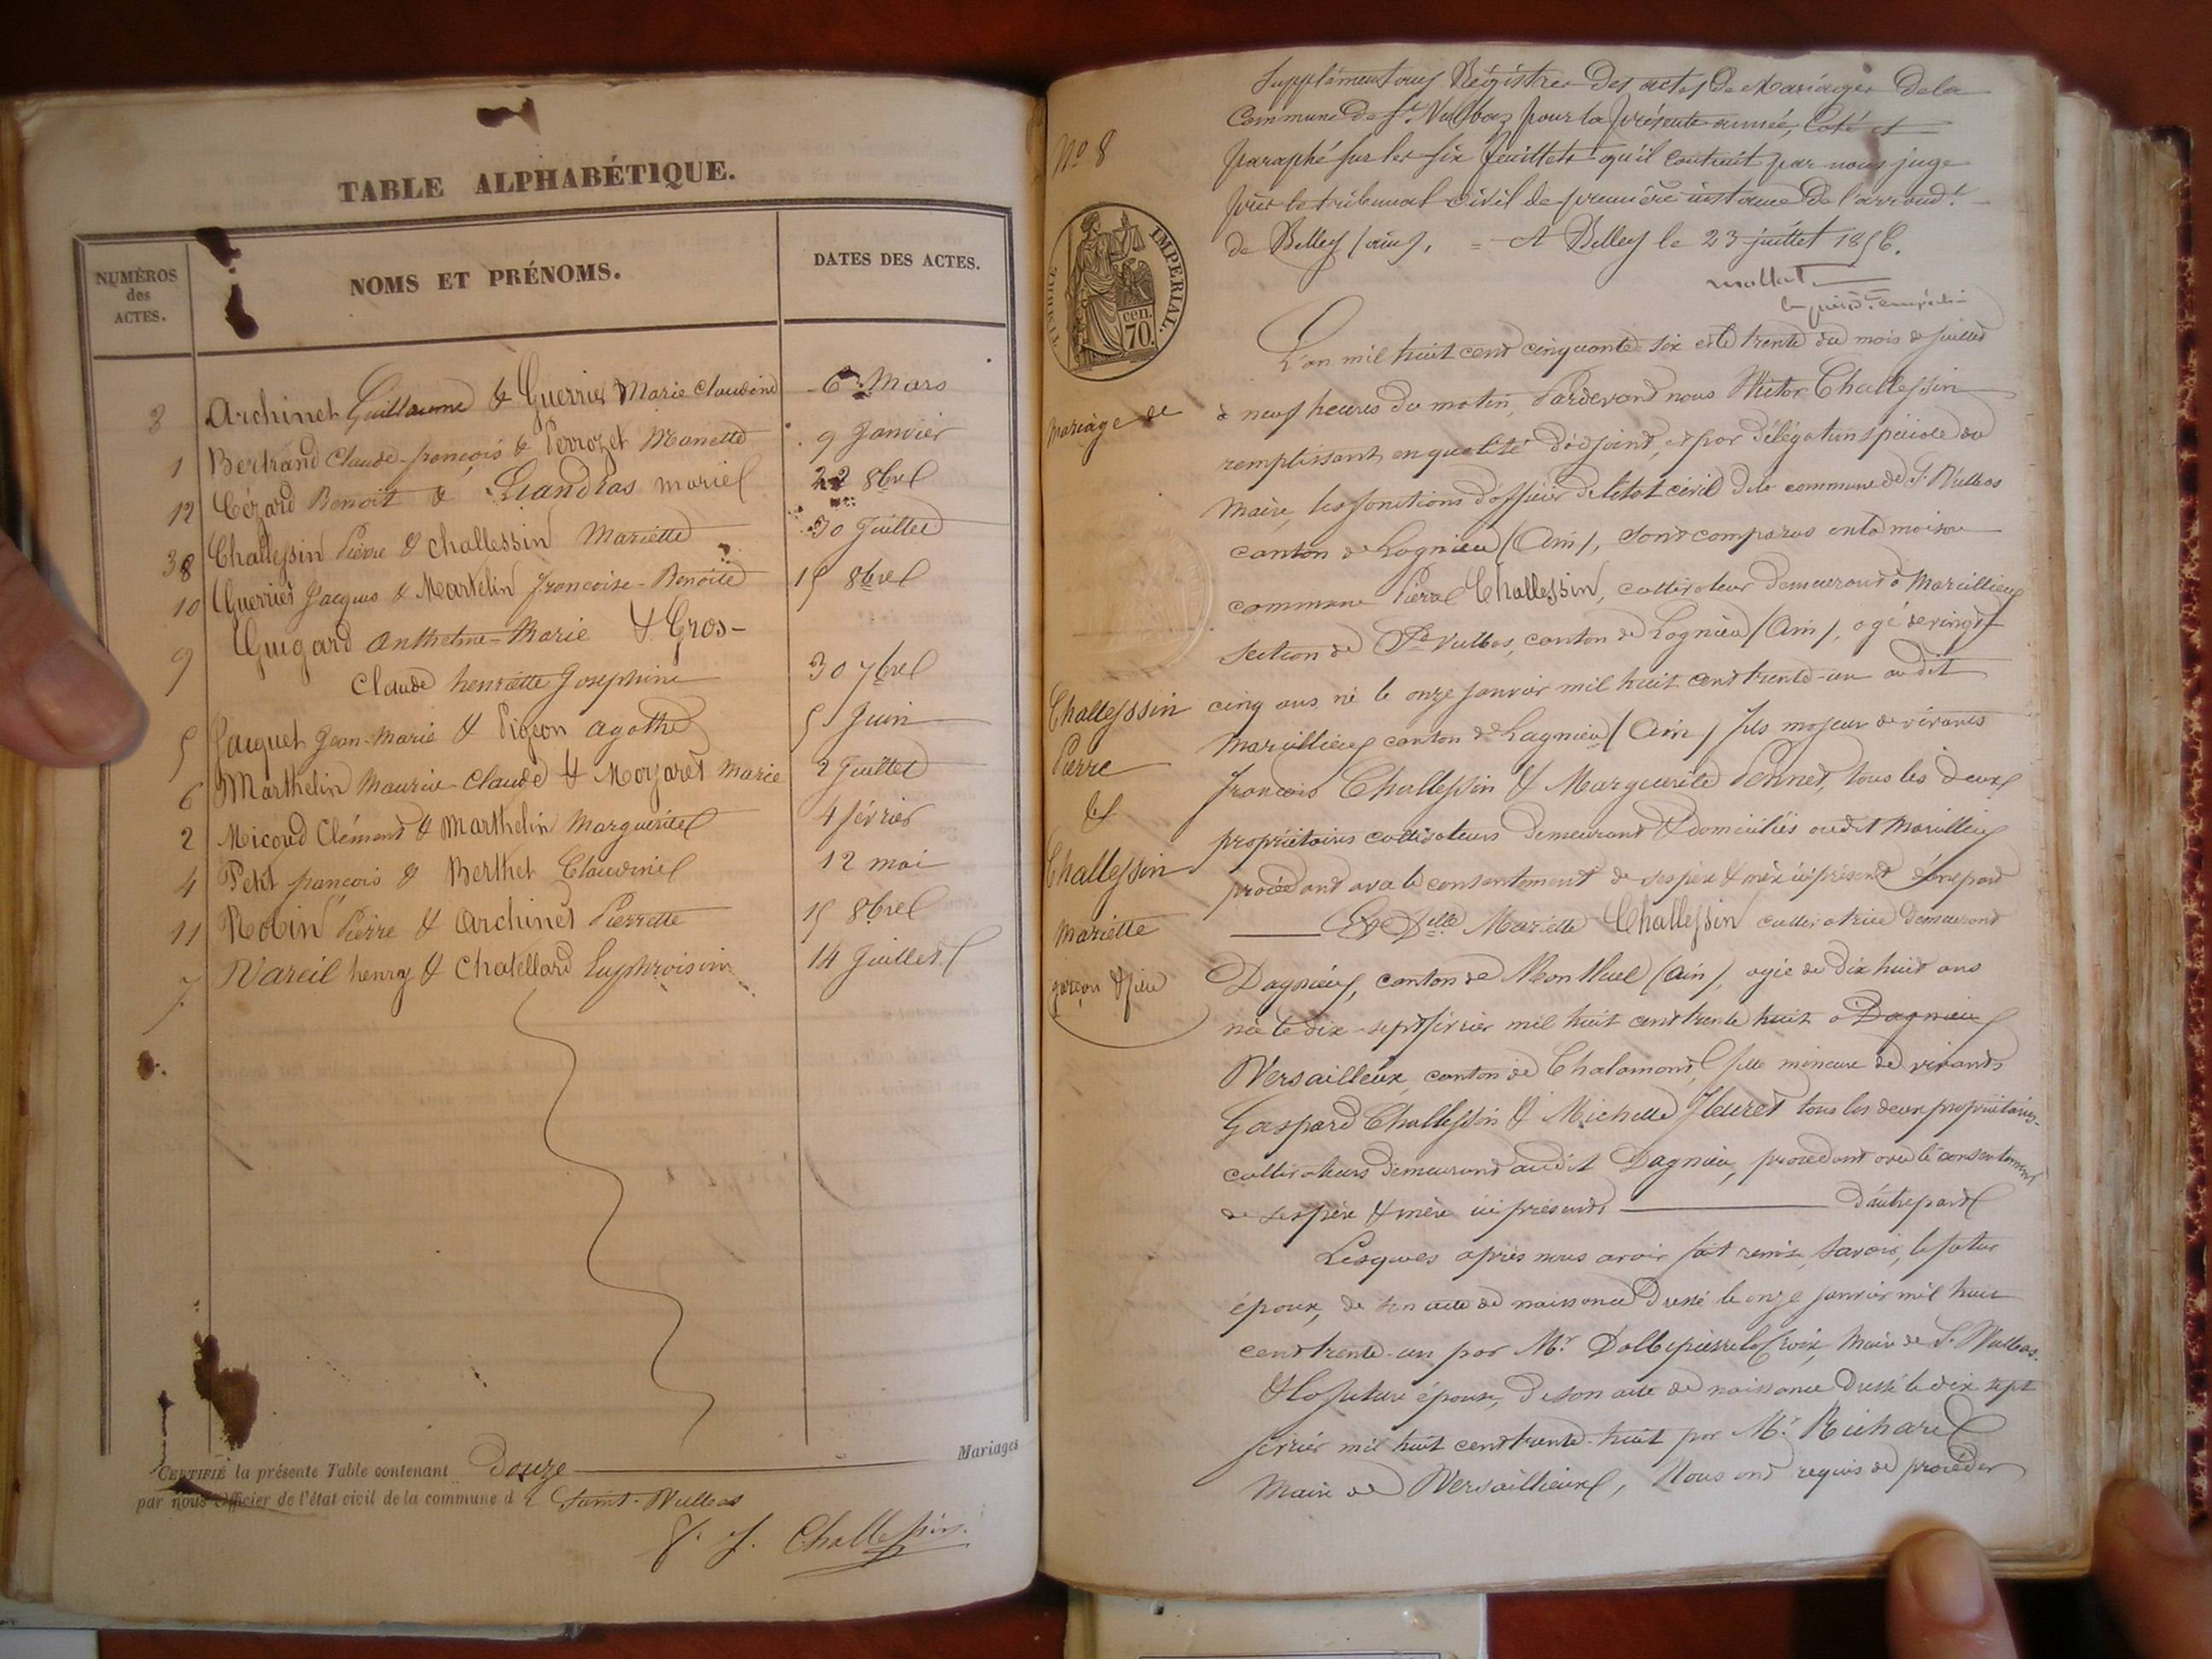 TABLE ALPHABÉTIQUE.
NUMÉROS des ACTES.
NOMS ET PRÉNOMS.
DATES DES ACTES.
3 Archinet Guillaume & Guerrier Marie Claudine 6 Mars
1 Bertrand Claude-françois & Perrozet Manette 9 Janvier
12 Cézard Benoit & Liandras marie 22 8bre
8 Challessin Pierre & challessin Mariette 30 Juillet
10 Guerrier Jacques & Martelin francoise-Benoite 15 8bre
9 Guigard Anthelme-Marie & Gros-
Claude henriette Josephine 30 7bre
5 Jacquet Jean-Marie & Pigeon agathe 5 Juin
6 Marthelin Maurice-Claude & Moyaret Marie 2 Juillet
2 Micoud Clément & Marthelin Marguerite 4 février
4 Petit françois & Berthet Claudine 12 mai
11 Robin Pierre & Archinet Pierrette 15 8bre
7 Vareil henry & Chatellard Euphroisine 14 Juillet
CERTIFIÉ la présente Table contenant douze Mariages
par nous Officier de l'état civil de la commune de Saint-Vulbas
Challessin.
Supplément aux Régistres des actes de Mariages de la
Commune de St. Vulbaz pour la présente année, Coté et
paraphé sur les six feuillets qu'il contient par nous juge
près le tribunal Civil de première instance de l'arrondt.
de Belley (ain). = A Belley le 23 juillet 1856.
mollat
le présidt. empêché
No 8
TIMBRE IMPERIAL.
70 cen.
L'an mil huit cent cinquante six et le trente du mois de juillet
à neuf heures du matin, Pardevant nous Victor Challessin
remplissant en qualité d'adjoint, et par délégation spéciale du
Maire, les fonctions d'officier de l'état civil de la commune de St. Vulbas
canton de Lagnieu (Ain), sont comparus en la maison
commune Pierre Challessin, cultivateur demeurant à Marcillieux
section de St. Vulbas, canton de Lagnieu (Ain), agé de vingt
cinq ans né le onze janvier mil huit cent trente-un audit
Marcillieux canton de Lagnieu (Ain) fils majeur de vivants
francois Challessin & Marguerite Pennet, tous les deux
propriétaires cultivateurs demeurant & domiciliés audit Marcillieux
procédant avec le consentement de ses père & mère ici présents d'une part
Et Delle Mariette Challessin cultivatrice demeurant
Dagnieux, canton de Montluel (Ain), agée de dix huit ans
née le dix-sept février mil huit cent trente huit à Dagnieu
Versailleux, canton de Chalamont, fille mineure de vivants
Gaspard Challessin & Michelle fleuret tous les deux propriétaires-
cultivateurs demeurant audit Dagnieu, procédant avec le consentement
de ses père & mère ici présents d'autre part
Lesquels après nous avoir fait remise, savoir, le futur
époux, de son acte de naissance dressé le onze janvier mil huit
cent trente-un par Mr. Maire de St. Vulbas.
& la future épouse, de son acte de naissance dressé le dix sept
février mil huit cent trente-huit par Mr. Richard
Maire de Versaillieux, Nous ont requis de procéder
Mariage de
Challesssin
Pierre
&
Challessin
Mariette
garçon & fille